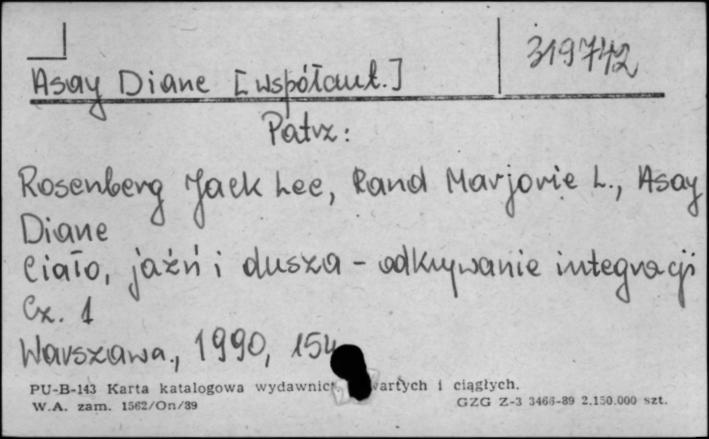 319742
Asay Diane [współaut.]
Patrz:
Rosenberg Jack Lee, Rand Marjorie L., Asay
Diane
Ciało, jaźń i dusza - odkrywanie integracji
Cz. 1
Warszawa., 1990, 154
PU-B-143 Karta katalogowa wydawnict wartych i ciągłych.
W.A. zam. 1562/On/89 GZG Z-3 3466-89 2.150.000 szt.